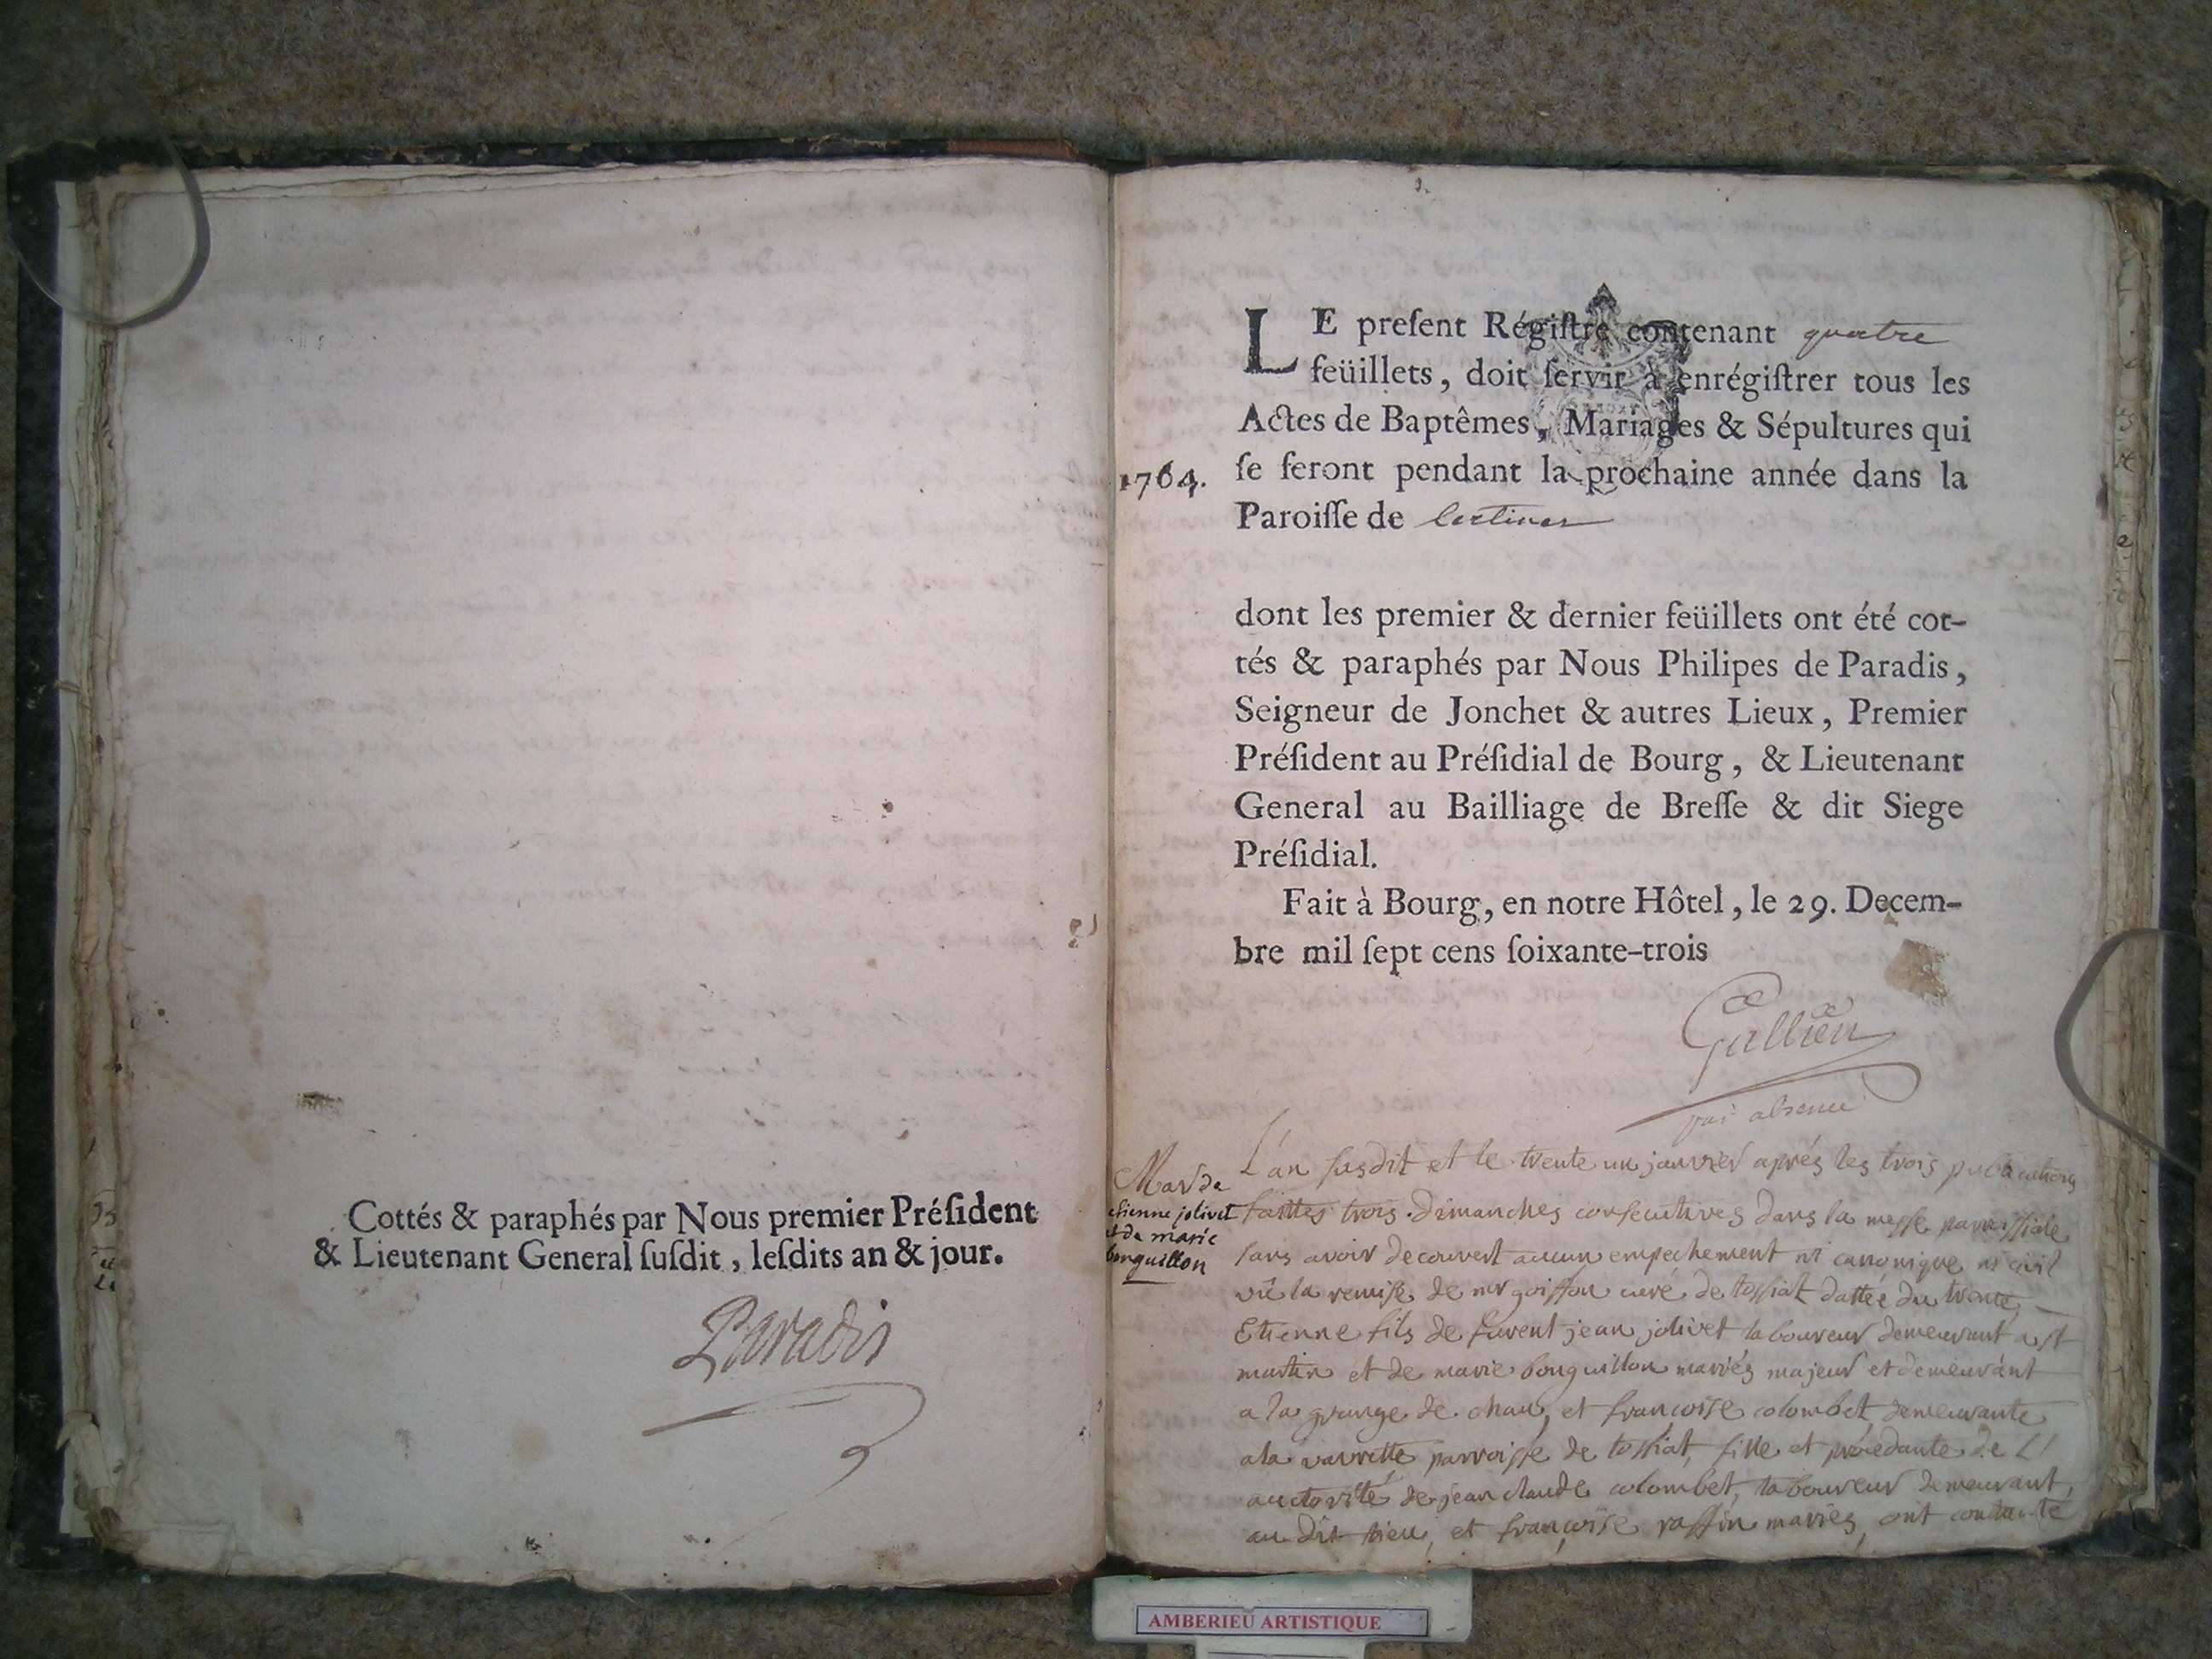 Cottés & paraphés par Nous premier Préſident
& Lieutenant General ſuſdit, leſdits an & jour.
Paradis
LE preſent Régiſtre contenant quatre
feüillets, doit ſervir à enrégiſtrer tous les
Actes de Baptêmes, Mariages & Sépultures qui
1764. ſe feront pendant la prochaine année dans la
Paroiſſe de
dont les premier & dernier feüillets ont été cot-
tés & paraphés par Nous Philipes de Paradis,
Seigneur de Jonchet & autres Lieux, Premier
Préſident au Préſidial de Bourg, & Lieutenant
General au Bailliage de Breſſe & dit Siege
Préſidial.
Fait à Bourg, en notre Hôtel, le 29. Decem-
bre mil ſept cens ſoixante-trois
Gallien
par absence
Mar de
etienne jolivet
et de marie
bonguillon
L'an susdit et le trente un janvier aprés les trois publications
faittes trois dimanches consecutives dans la messe parroissiale
sans avoir decouvert aucun empechement ni canonique ni civil
vû la remise de mr goiffon curé de tossiat dattée du trente
Etienne fils de furent jean jolivet laboureur demeurant a st
martin et de marie bonguillon mariés majeur et demeurant
a la grange de chaux et françoise colombet demeurante
a la varrette parroisse de tossiat, fille et procedante de l'
auctorité de jean claude colombet, laboureur demeurant
au dit lieu, et françoise raffin mariés, ont contracté
AMBERIEU ARTISTIQUE